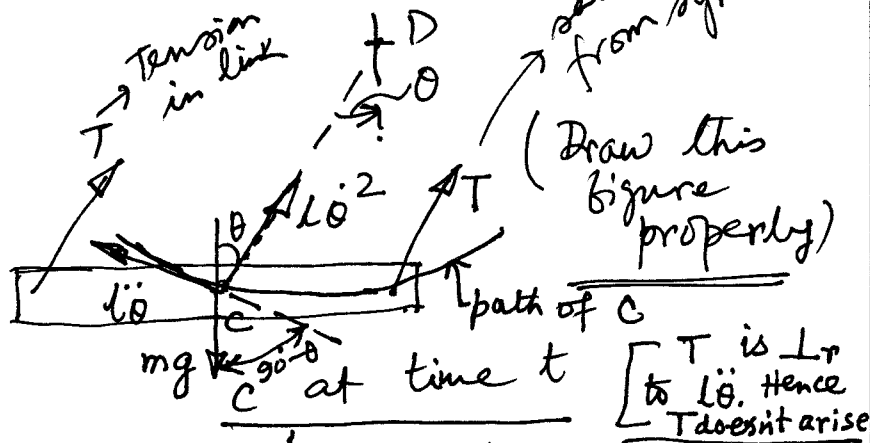 Tension
in link
T
D
θ
from
(Draw this
figure
properly)
T
θ
lθ̇²
lθ̈
C
path of C
mg
90-θ
C at time t
[T is ⊥r
to lθ̈. Hence
T doesn't arise